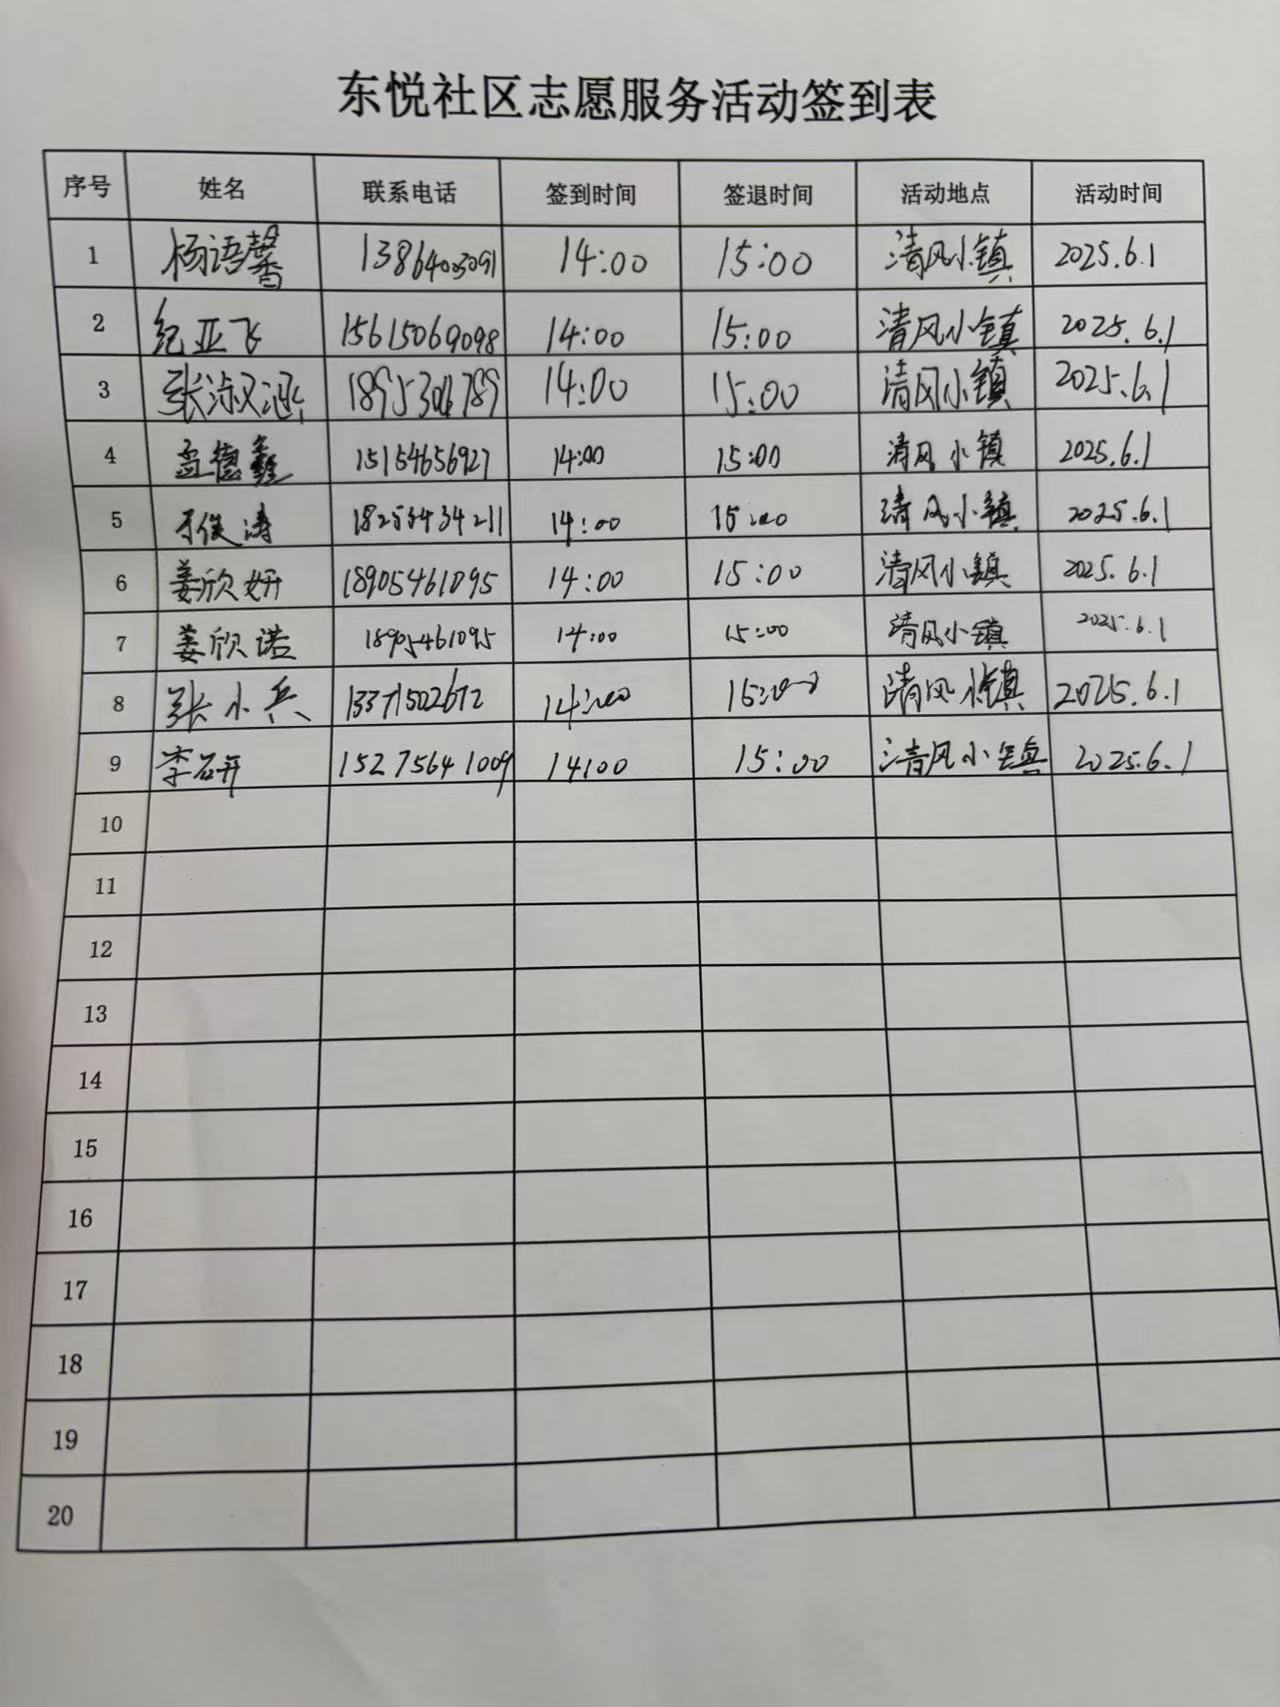 东悦社区志愿服务活动签到表
序号 姓名 联系电话 签到时间 签退时间 活动地点 活动时间
1 杨语馨 13864003091 14:00 15:00 清风小镇 2025.6.1
2 纪亚飞 15615069098 14:00 15:00 清风小镇 2025.6.1
3 张淑涵 14:00 15:00 清风小镇 2025.6.1
4 孟德鑫 15154656927 14:00 15:00 清风小镇 2025.6.1
5 于俊涛 18253434211 14:00 15:00 清风小镇 2025.6.1
6 姜欣妍 18905461095 14:00 15:00 清风小镇 2025.6.1
7 姜欣诺 18905461095 14:00 15:00 清风小镇 2025.6.1
8 张小兵 13371502672 14:00 15:00 清风小镇 2025.6.1
9 李石开 15275641009 14:00 15:00 清风小镇 2025.6.1
10
11
12
13
14
15
16
17
18
19
20